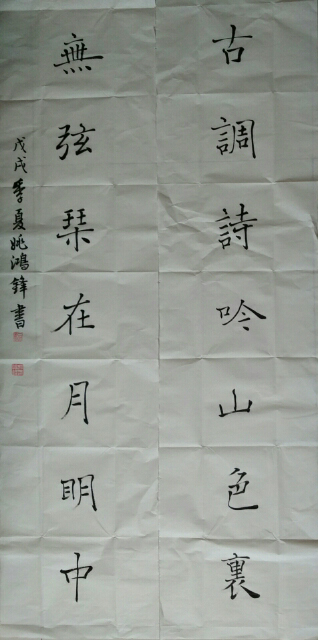 古調詩吟山色裏
無弦琹在月明中
戊戌季夏姚鴻鋒書